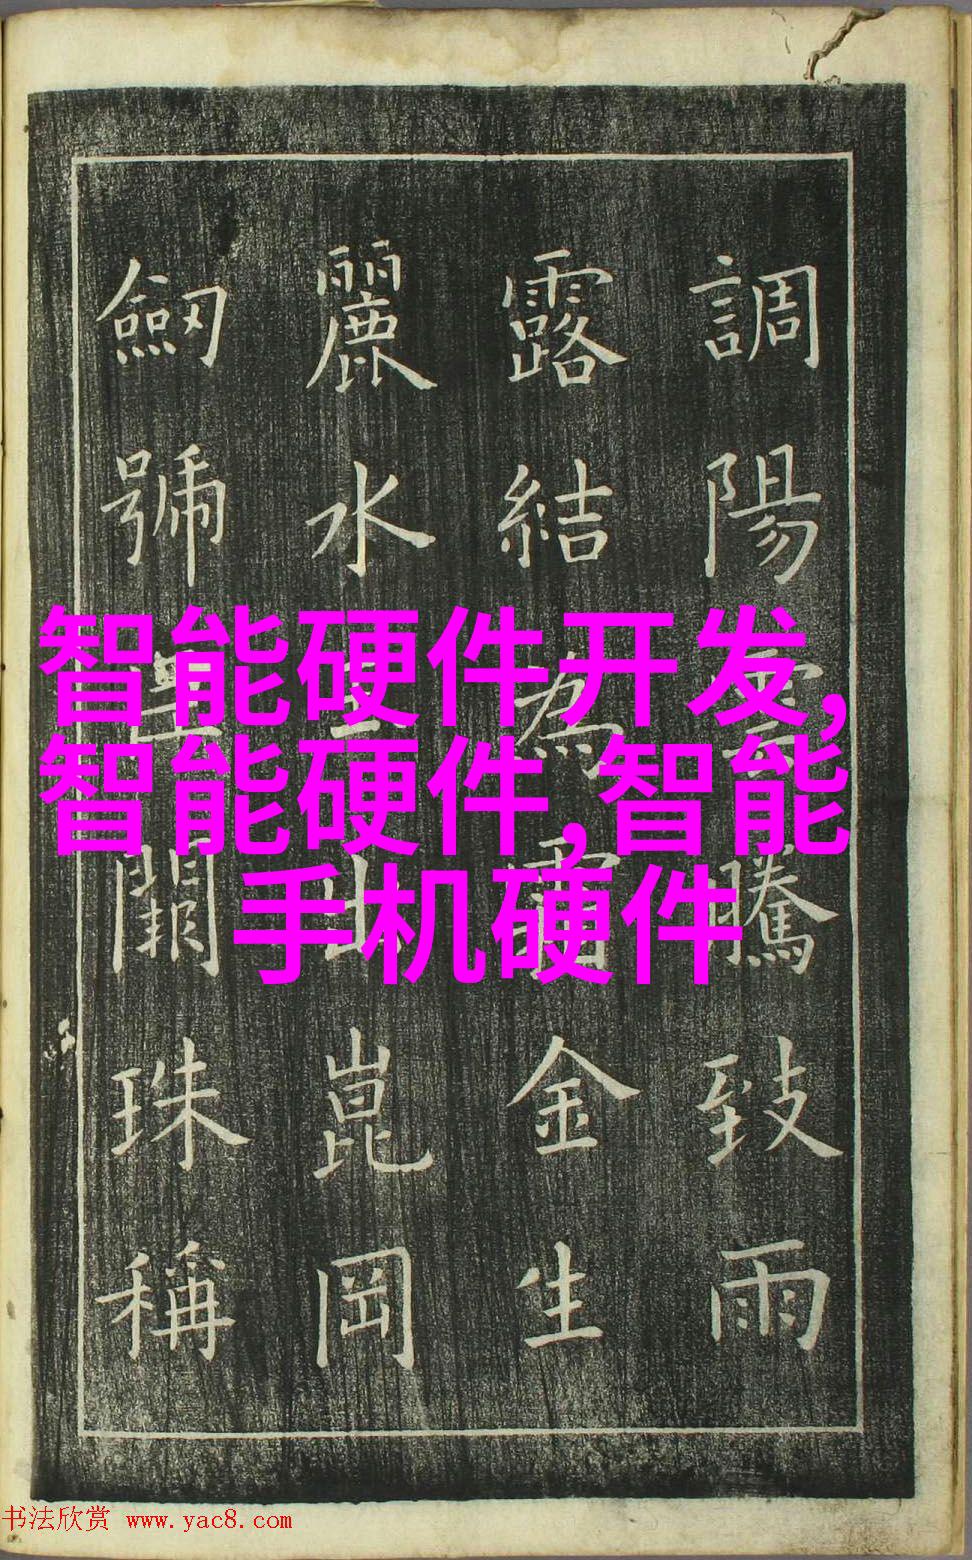 調陽雲騰致雨
露結為霜金生
麗水出崑岡
劒號巨闕珠稱
智能硬件开发,
智能硬件,智能
手机硬件
书法欣赏 www.yac8.com